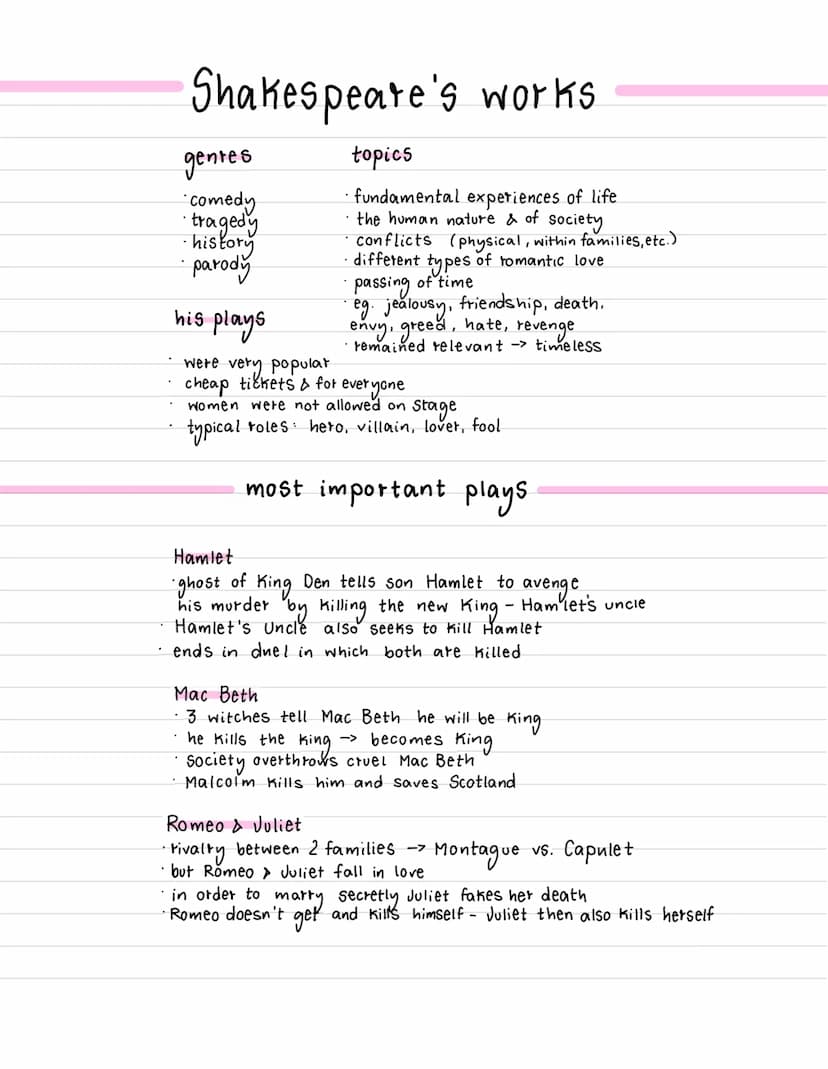 Shakespeare's works
genres
· comedy
· tragedy
· history
· parody
topics
· fundamental experiences of life
· the human nature & of society
· conflicts (physical, within families, etc.)
· different types of romantic love
· passing of time
· eg. jealousy, friendship, death,
envy, greed, hate, revenge
· remained relevant -> timeless
his plays
· were very popular
· cheap tickets & for everyone
· women were not allowed on stage
· typical roles: hero, villain, lover, fool
most important plays
Hamlet
· ghost of King Den tells son Hamlet to avenge
his murder by killing the new King - Hamlet's uncle
· Hamlet's Uncle also seeks to kill Hamlet
· ends in duel in which both are killed
Mac Beth
· 3 witches tell Mac Beth he will be King
· he kills the King -> becomes King
· society overthrows cruel Mac Beth
· Malcolm kills him and saves Scotland
Romeo & Juliet
· rivalry between 2 families -> Montague vs. Capulet
· but Romeo & Juliet fall in love
· in order to marry secretly Juliet fakes her death
· Romeo doesn't get and kills himself - Juliet then also kills herself